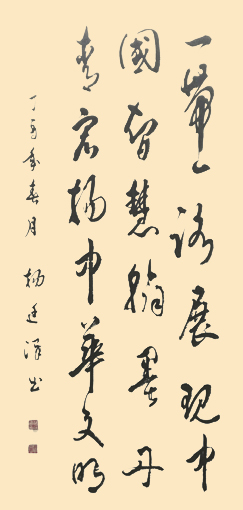 一带一路展现中
國智慧翰墨丹
青宏扬中華文明
丁酉年春月 杨廷泽书